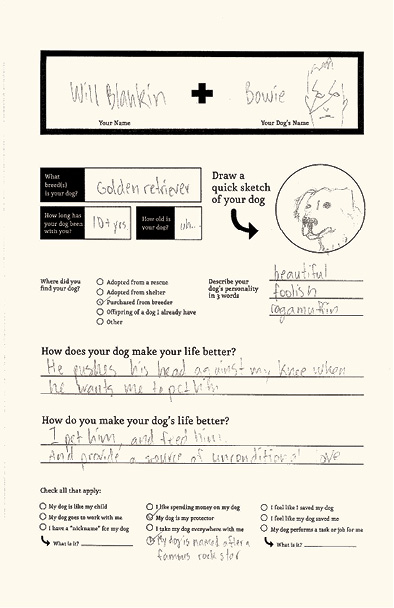 Will Blankin + Bowie
Your Name Your Dog's Name
What breed(s) is your dog? Golden retriever
How long has your dog been with you? 10+ yrs
How old is your dog? uh...
Draw a quick sketch of your dog
Where did you find your dog?
Adopted from a rescue
Adopted from shelter
Purchased from breeder
Offspring of a dog I already have
Other
Describe your dog's personality in 3 words
beautiful
foolish
ragamuffin
How does your dog make your life better?
He pushes his head against my knee when
he wants me to pet him
How do you make your dog's life better?
I pet him, and feed him.
And provide a source of unconditional love
Check all that apply:
My dog is like my child
My dog goes to work with me
I have a "nickname" for my dog
What is it?
I like spending money on my dog
My dog is my protector
I take my dog everywhere with me
My dog is named after a
famous rock star
I feel like I saved my dog
I feel like my dog saved me
My dog performs a task or job for me
What is it?